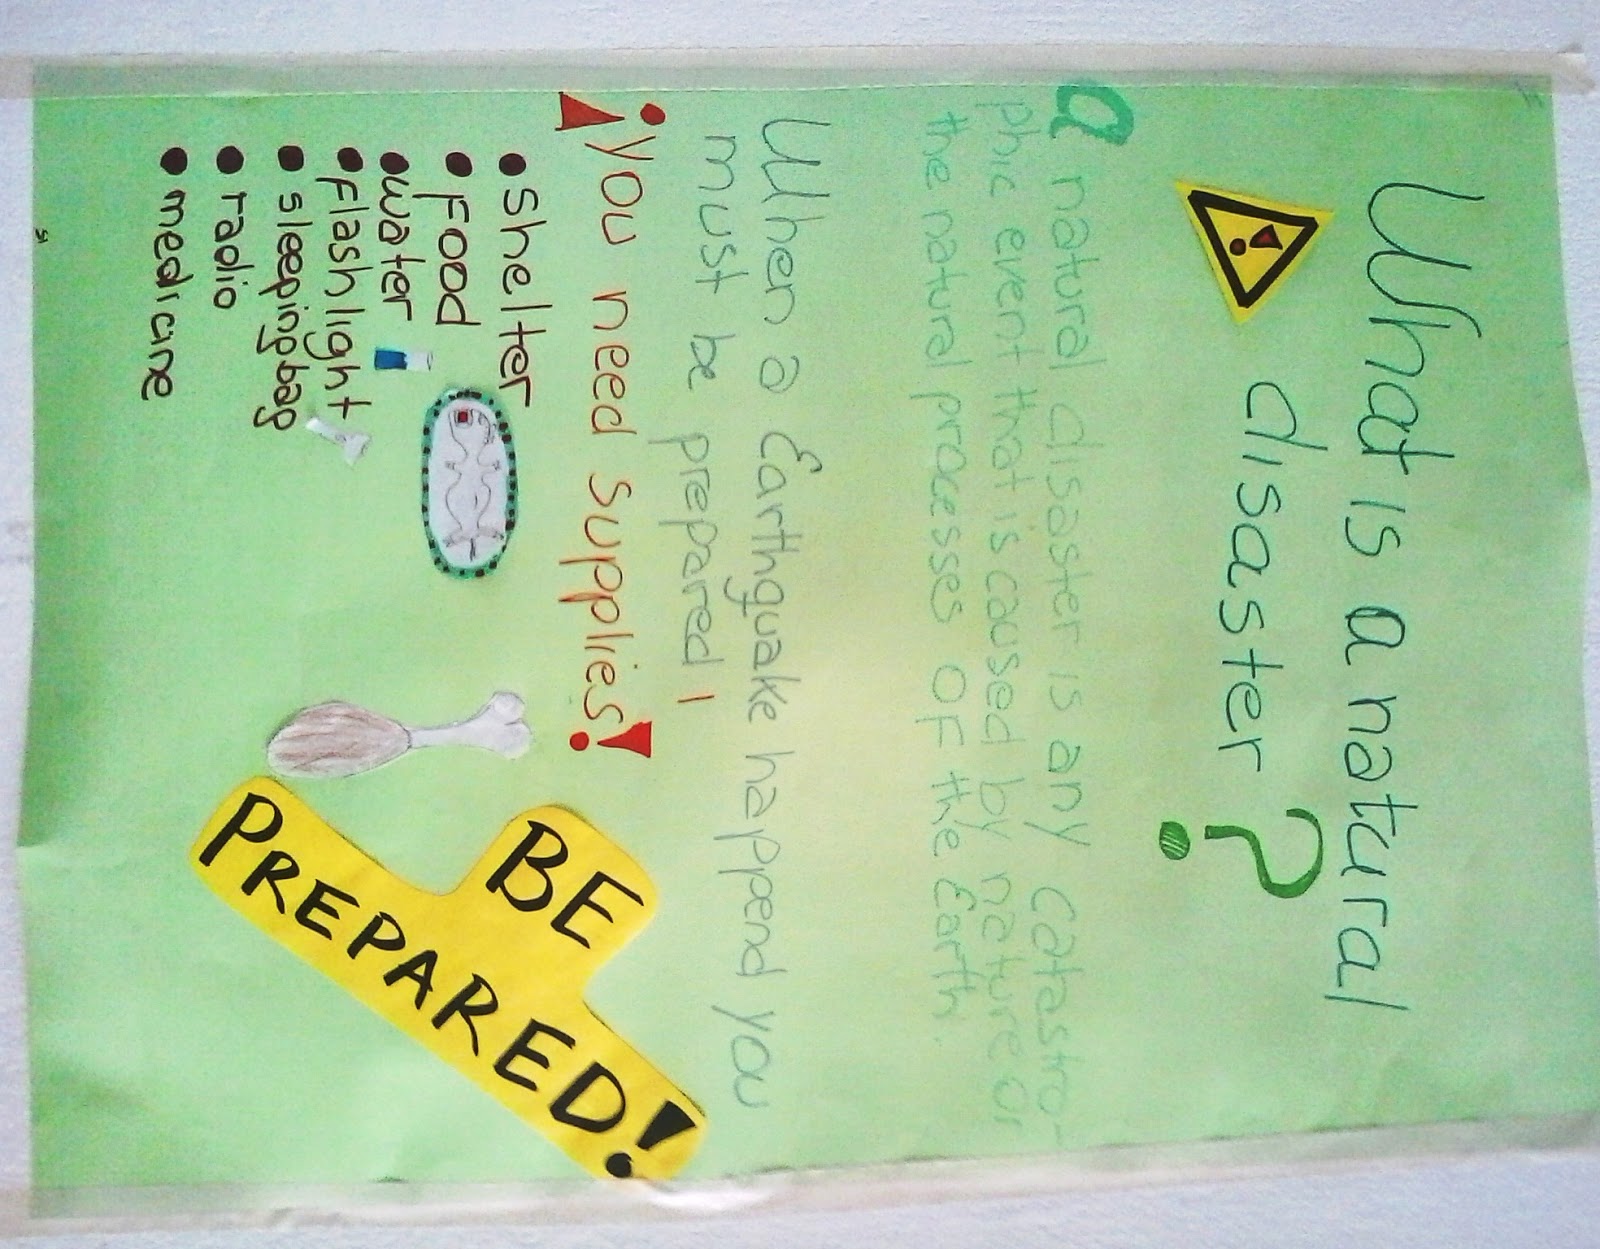 What is a natural
disaster ?
a natural disaster is any catastro-
phic event that is caused by nature or
the natural processes OF the Earth.
When a Earthquake happend you
must be prepared!
¡you need supplies!
• Shelter
• Food
• water
• Flashlight
• sleeping bag
• radio
• medicine
BE
PREPARED!